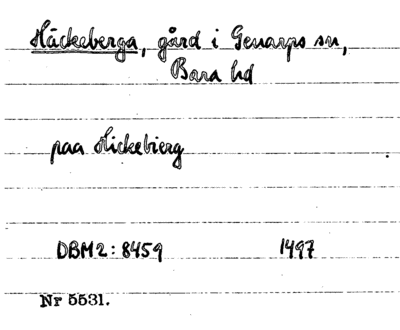 Häckeberga, gård i Genarps sn,
Bara hd
paa Hickebierg
DBM2: 8459 1497
Nr 5531.